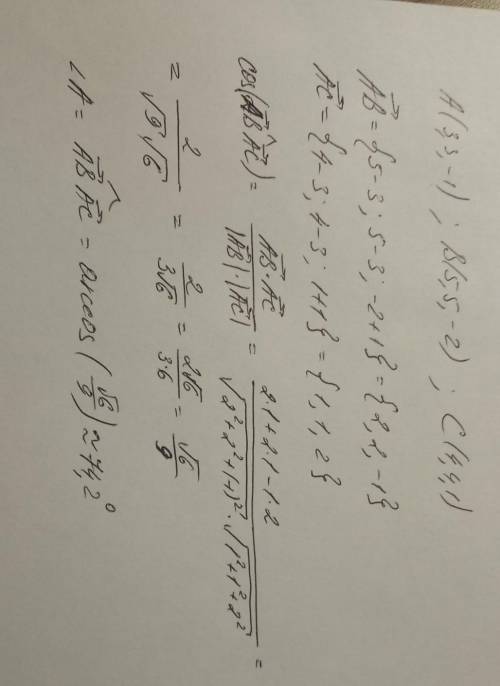 A(3,3,-1); B(5,5,-2); C(4,4,1)
AB⃗ = {5-3; 5-3; -2+1} = {2, 2, -1}
AC⃗ = {4-3; 4-3; 1+1} = {1, 1, 2}
cos(AB⃗ ^ AC⃗) = (AB⃗ · AC⃗)/(|AB⃗| · |AC⃗|) = (2·1+2·1-1·2)/(√(2²+2²+(-1)²) · √(1²+1²+2²)) =
= 2/(√9 √6) = 2/(3√6) = 2√6/(3·6) = √6/9
∠A = AB⃗ ^ AC⃗ = arccos(√6/9) ≈ 74,2°